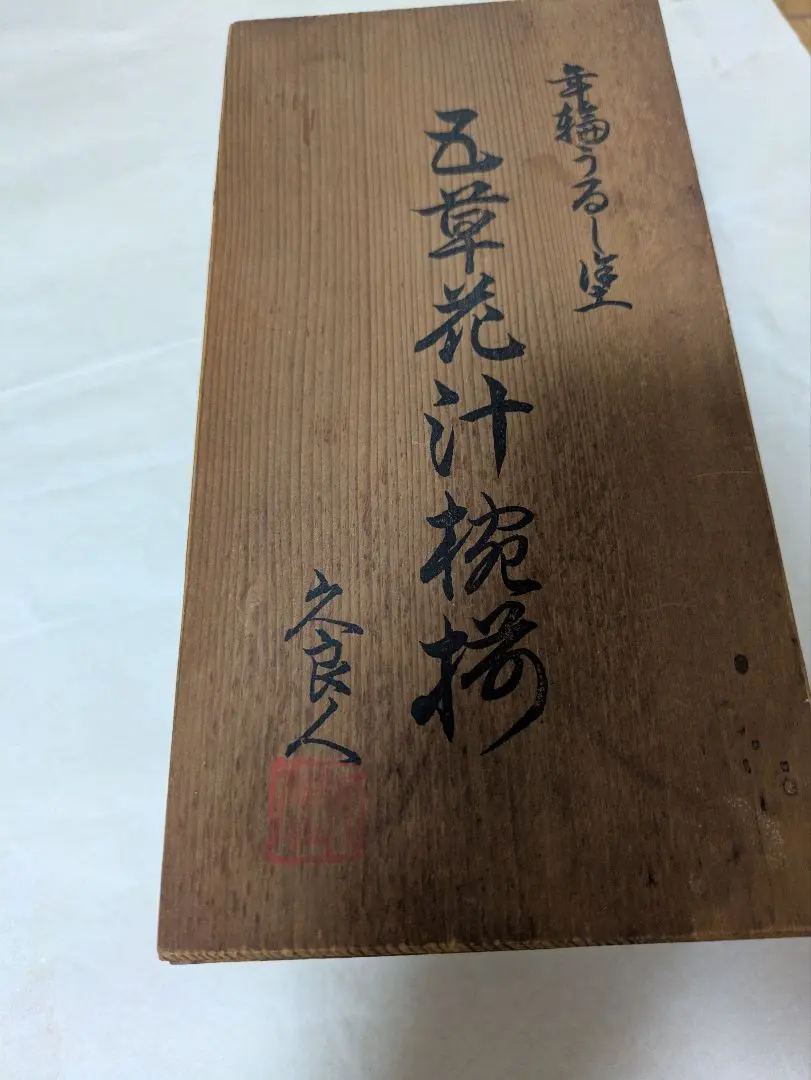 年輪うるし塗
五草花汁椀揃
久良人